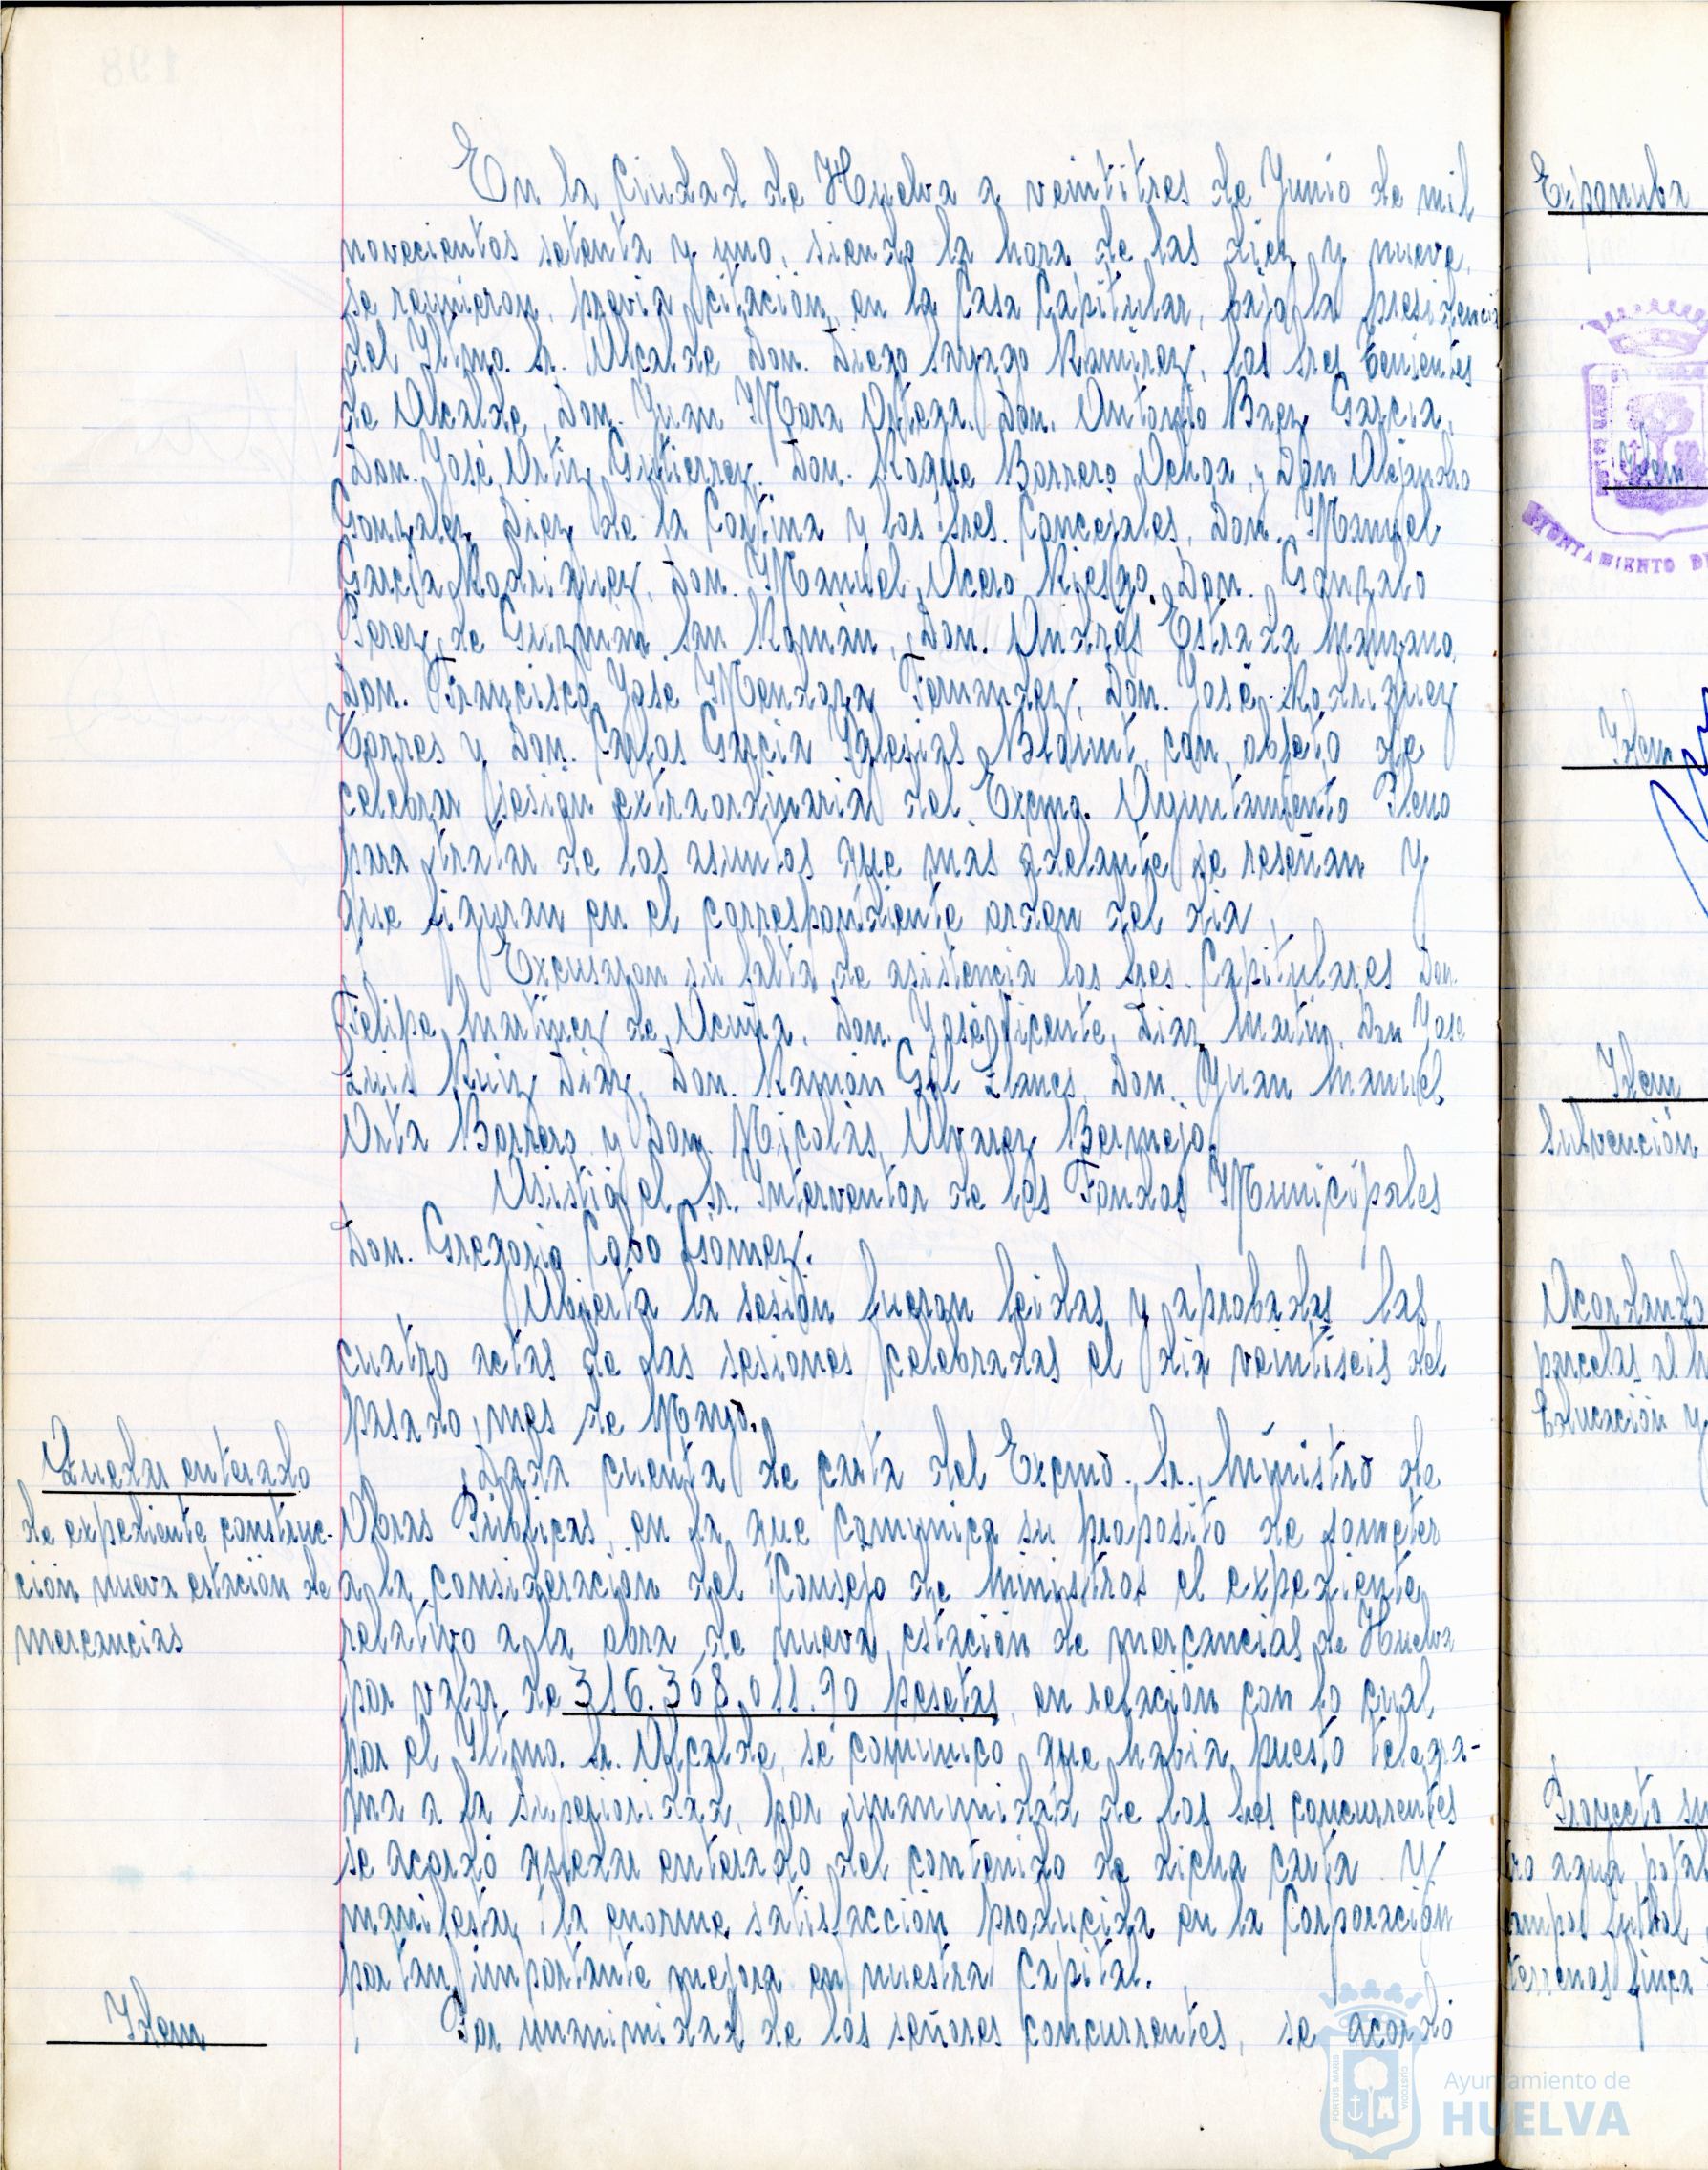 En la Ciudad de Huelva a veintitres de Junio de mil
novecientos setenta y uno, siendo la hora de las diez y nueve,
se reunieron, previa citación, en la Casa Capitular, bajo la presidencia
del Iltmo. Sr. Alcalde Don. Diego Sayago Ramirez, los Sres Tenientes
de Alcalde, Don. Juan Mora Ortega. Don. Antonio Baez Garcia,
Don. José Ortiz Gutierrez. Don. Roque Barrero Ochoa, y Don Alejandro
Gonzalez Diez de la Cortina y los Sres. Concejales, Don. Manuel
Garcia Rodriguez, Don. Manuel Acero Riesgo. Don. Gonzalo
Perez de Guzmán San Román, Don. Andrés Estrada Manzano,
Don. Francisco José Mendoza Fernandez, Don. José Rodriguez
Torres y Don. Carlos Garcia Iglesias con objeto de
celebrar sesion extraordinaria del Excmo. Ayuntamiento Pleno
para tratar de los asuntos que mas adelante se reseñan y
que figuran en el correspondiente orden del dia,
Excusaron su falta de asistencia los Sres. Capitulares Don.
Felipe Martinez de Acuña. Don. José Vicente Diaz Martin, Don José
Luis Ruiz Diaz, Don. Ramón Gil Llanes, Don. Juan Manuel
Orta Borrero y Don. Nicolás Alvarez Bermejo.
Asistió el Sr. Interventor de los Fondos Municipales
Don. Gregorio Cobo Gomez.
Abierta la sesión fueron leidas y aprobadas las
cuatro actas de las sesiones celebradas el dia veintiseis del
pasado mes de Mayo.
Quedar enterado
de expediente construc-
ción nueva estación de
mercancias
Dada cuenta de carta del Excmo. Sr. Ministro de
Obras Públicas, en la que comunica su proposito de someter
a la consideración del Consejo de Ministros el expediente
relativo a la obra de nueva estación de mercancias de Huelva
por valor de 316.308.011.90 pesetas, en relación con lo cual
por el Iltmo. Sr. Alcalde, se comunicó que habia puesto telegra-
ma a la superioridad, por unanimidad de los Sres concurrentes
se acordó quedar enterado del contenido de dicha carta y
manifestar la enorme satisfacción producida en la Corporación
por tan importante mejora en nuestra Capital.
Idem
Por unanimidad de los señores concurrentes, se acordó
Idem
Idem
Idem
Subvención
Acordando
parcelas al
Educación y
Proyecto
agua
terrenos finca
Ayuntamiento de
HUELVA